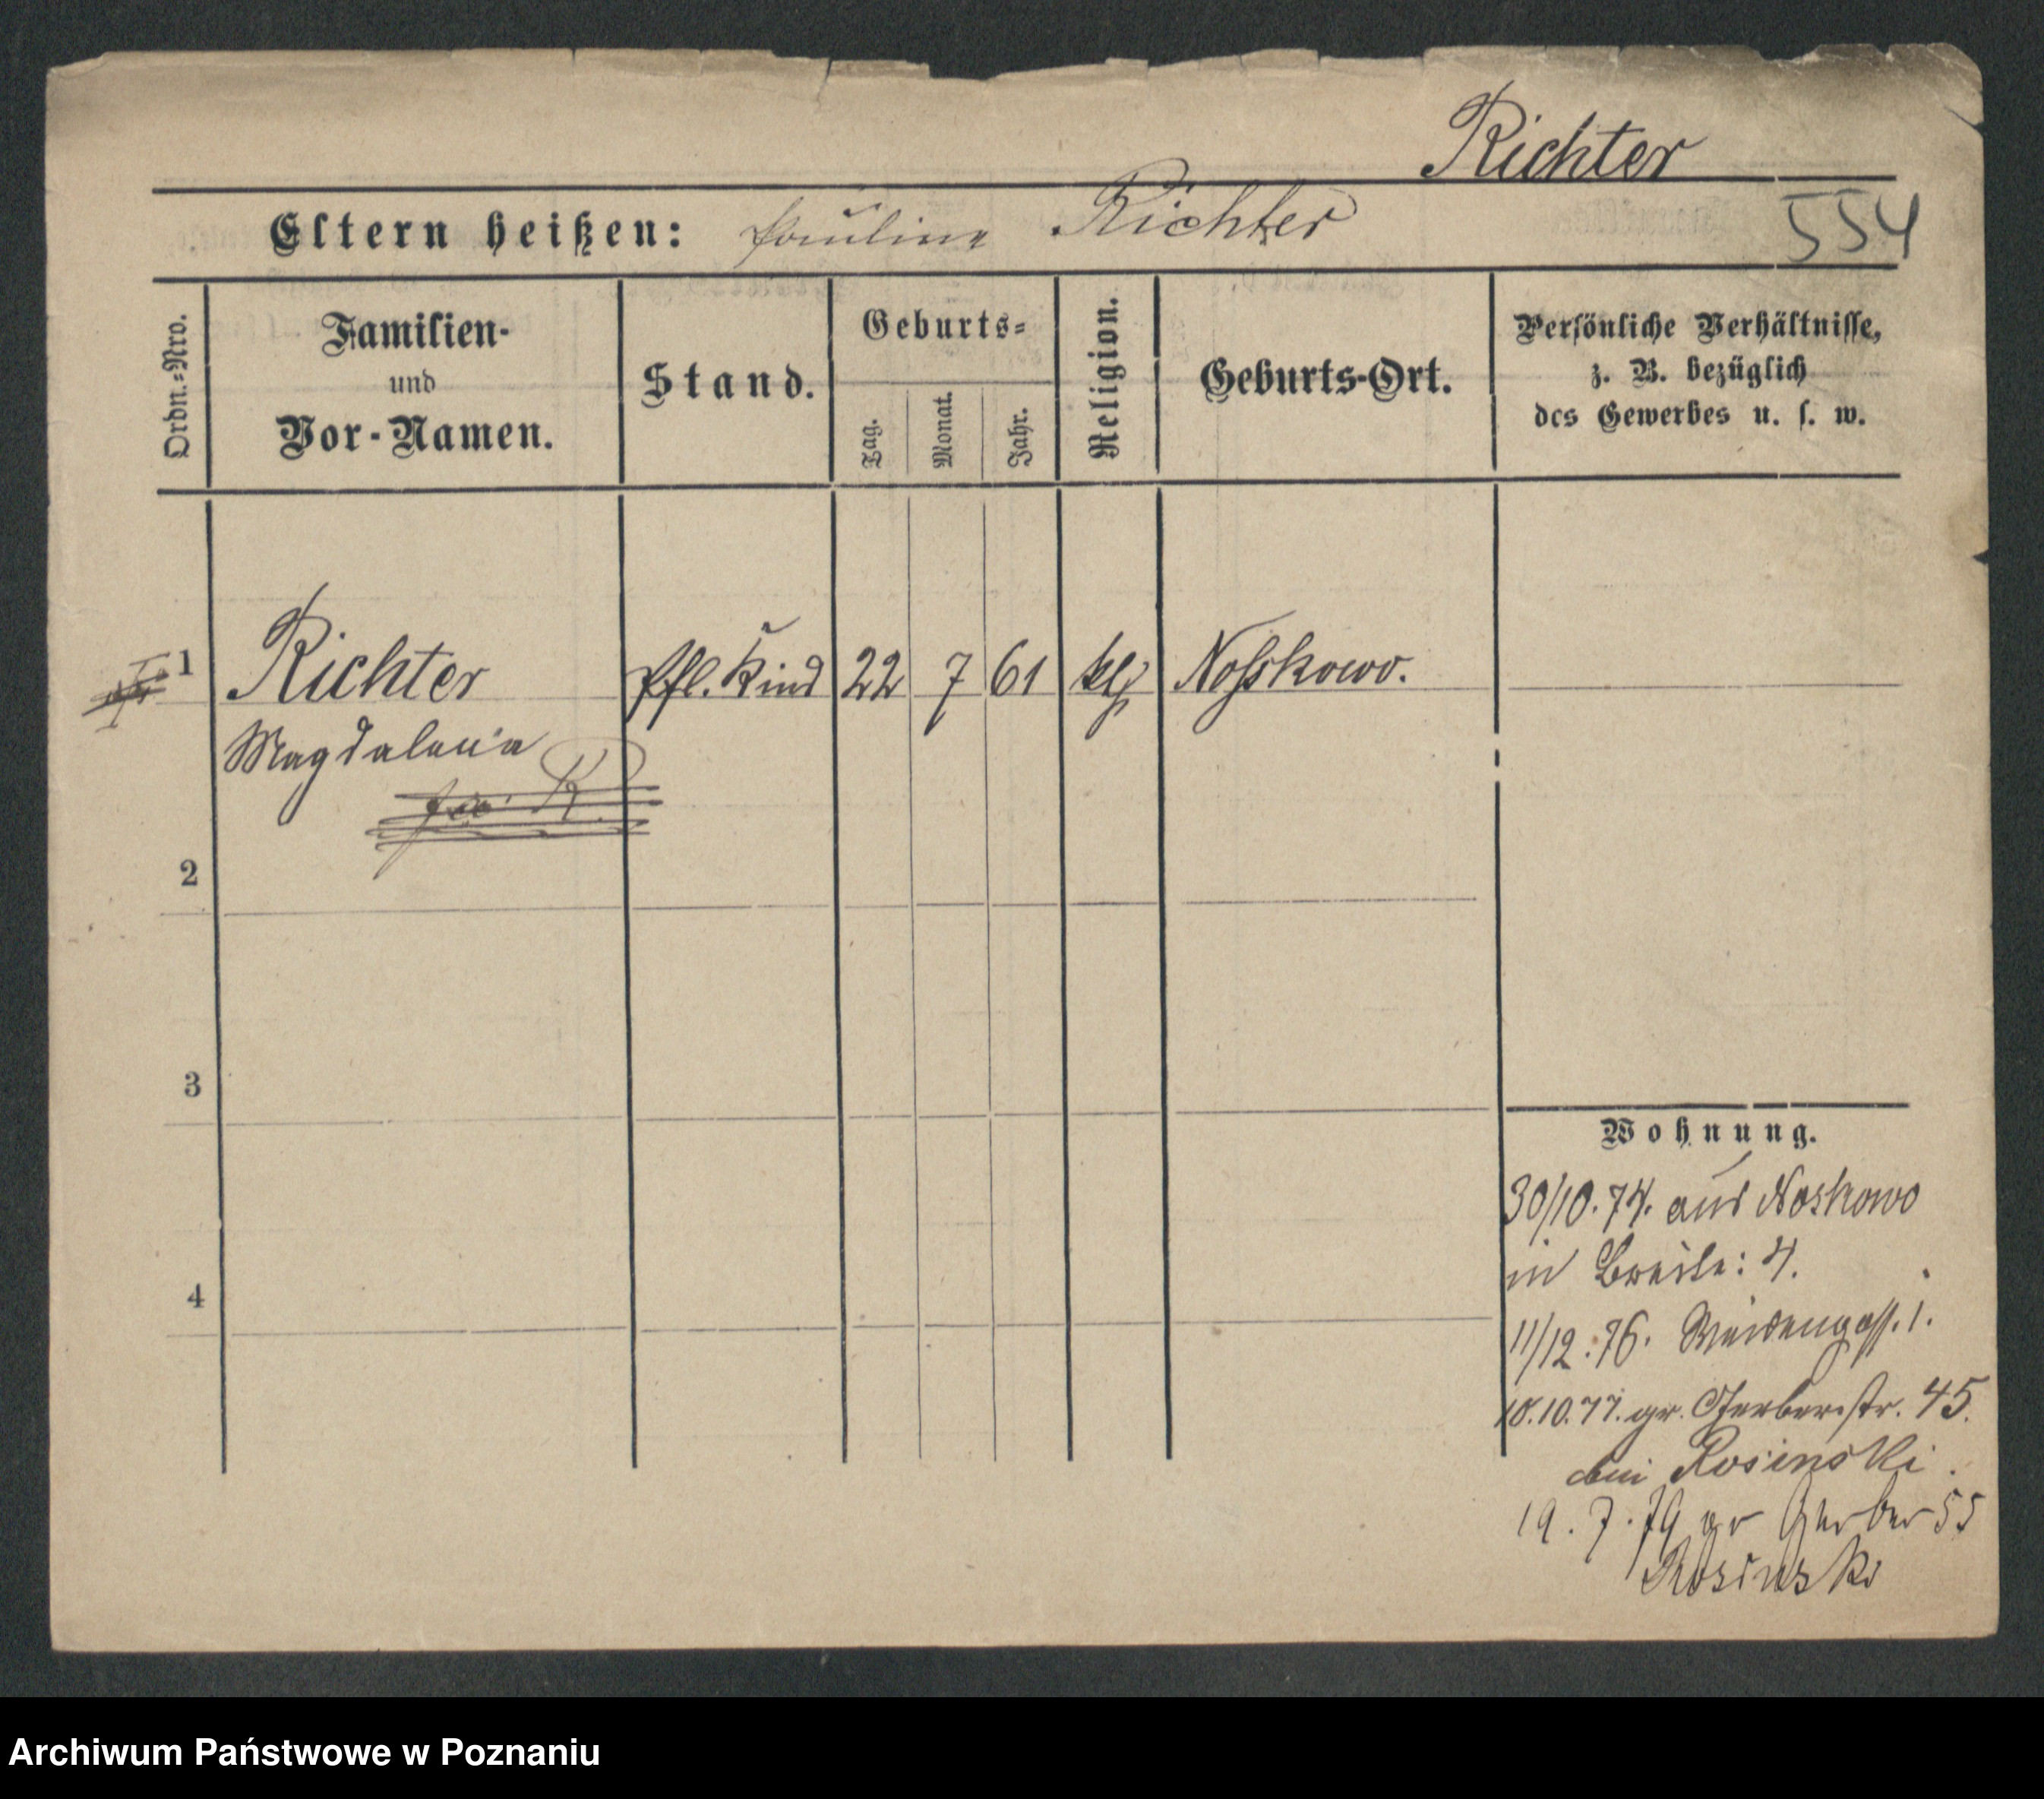 Richter
Eltern heißen: Pauline Richter 554
Ordn.=Nro.
Familien-
und
Vor-Namen.
Stand.
Geburts=
Tag.
Monat.
Jahr.
Religion.
Geburts-Ort.
Persönliche Verhältnisse,
z. B. bezüglich
des Gewerbes u. s. w.
1 Richter Pfl. Kind 22 7 61 Noskowo.
Magdalena
2
3
4
Wohnung.
30/10. 74. aus Noskowo
in Breite: 4.
11/12. 76. Weidengass. 1.
18.10.77. gr. Gerberstr. 45.
bei Rosinski.
19. 7. 79 gr Gerber 55
Rosinski
Archiwum Państwowe w Poznaniu